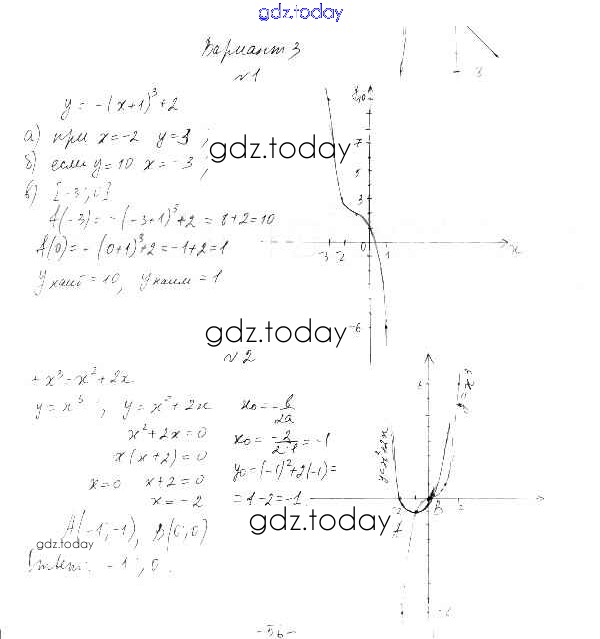 gdz.today
Вариант 3
3
№1
y = -(x+1)³+2
а) при x=-2 y=3;
б) если y=10 x=-3;
в) [-3; 0]
A(-3) = -(-3+1)³+2 = 8+2=10
A(0) = -(0+1)³+2 = -1+2=1
y наиб = 10, y наим = 1
10
7
5
3
-3 -2 0 1 x
-6
gdz.today
gdz.today
№2
x³ = x²+2x
y = x³; y = x²+2x
x²+2x=0
x(x+2)=0
x=0 x+2=0
x=-2
x₀ = -b/2a
x₀ = -2/2·1 = -1
y₀ = (-1)²+2(-1)=
= 1-2=-1
A(-1;-1), B(0;0)
Ответ: -1; 0.
y=x²+2x
y=x³
-2
A
B
gdz.today
gdz.today
-56-